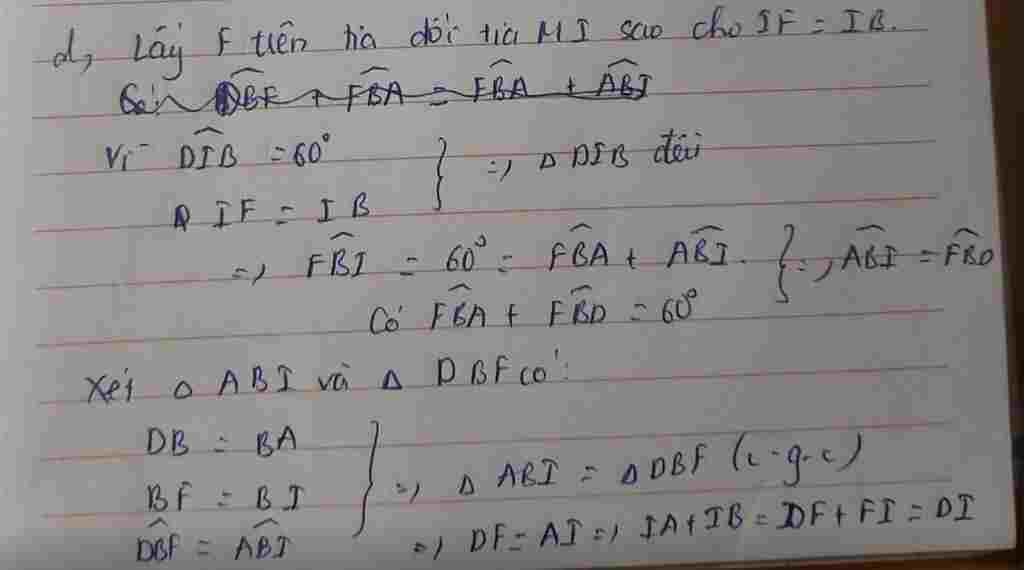 d, Lấy F trên tia đối tia MI sao cho IF = IB.
Vì DIB̂ = 60°
IF = IB } => Δ DIB đều
=> FB̂I = 60° = FB̂A + AB̂I. } => AB̂I = FB̂D
Có FB̂A + FB̂D = 60°
Xét Δ ABI và Δ DBF có:
DB = BA
BF = BI } => Δ ABI = Δ DBF (c-g-c)
DB̂F = AB̂I => DF = AI => IA + IB = DF + FI = DI